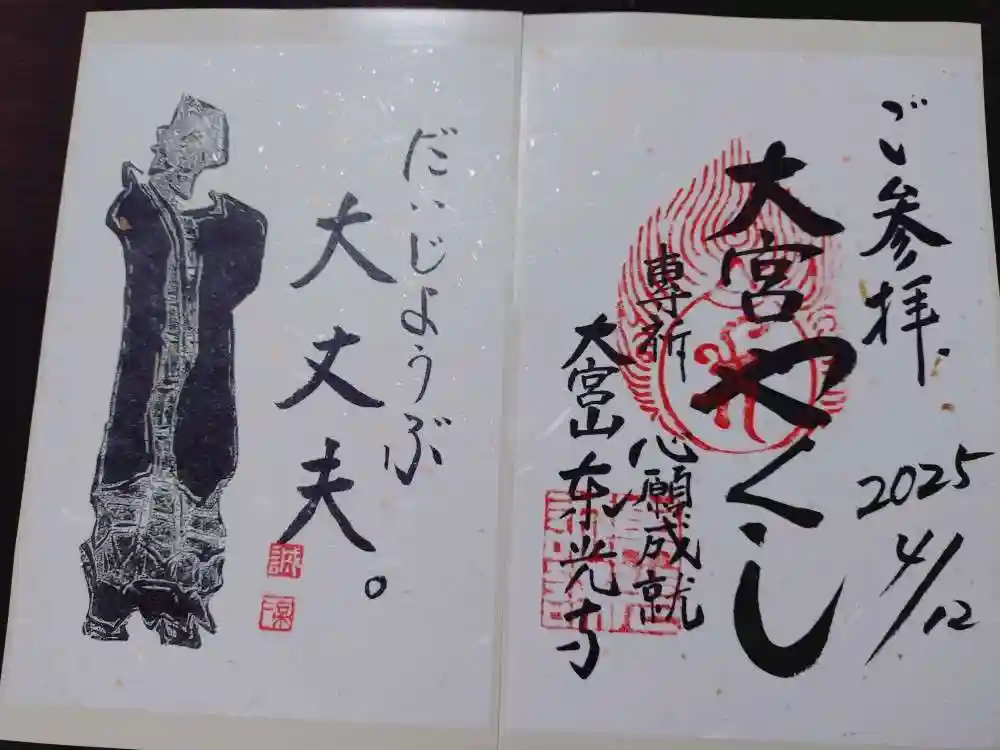 ご参拝
2025
4/12
大宮やくし
専祈 心願成就
大宮山 東光寺
だいじようぶ
大丈夫。
誠
涼